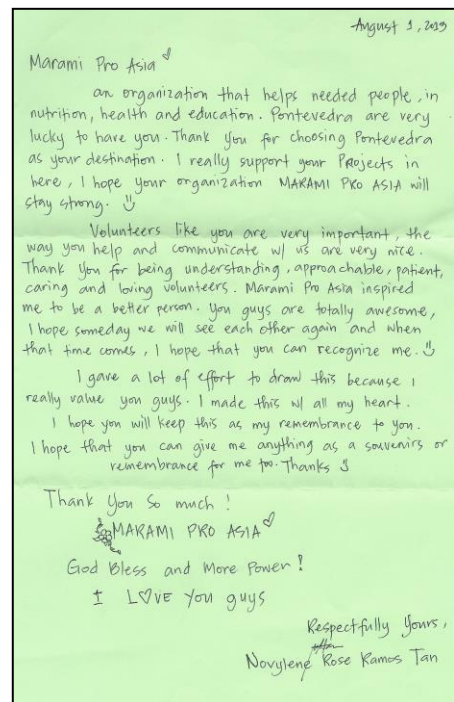 August 1, 2019
Marami Pro Asia
an organization that helps needed people, in
nutrition, health and education. Pontevedra are very
lucky to have you. Thank you for choosing Pontevedra
as your destination. I really support your Projects in
here, I hope your organization MARAMI PRO ASIA will
stay strong.
Volunteers like you are very important, the
way you help and communicate w/ us are very nice.
Thank you for being understanding, approachable, patient,
caring and loving volunteers. Marami Pro Asia inspired
me to be a better person. You guys are totally awesome,
I hope someday we will see each other again and when
that time comes, I hope that you can recognize me.
I gave a lot of effort to draw this because I
really value you guys. I made this w/ all my heart.
I hope you will keep this as my remembrance to you.
I hope that you can give me anything as a souvenirs or
remembrance for me too. Thanks
Thank You So much!
MARAMI PRO ASIA
God Bless and More Power!
I LOVE You guys
Respectfully Yours,
Novylene Rose Ramos Tan